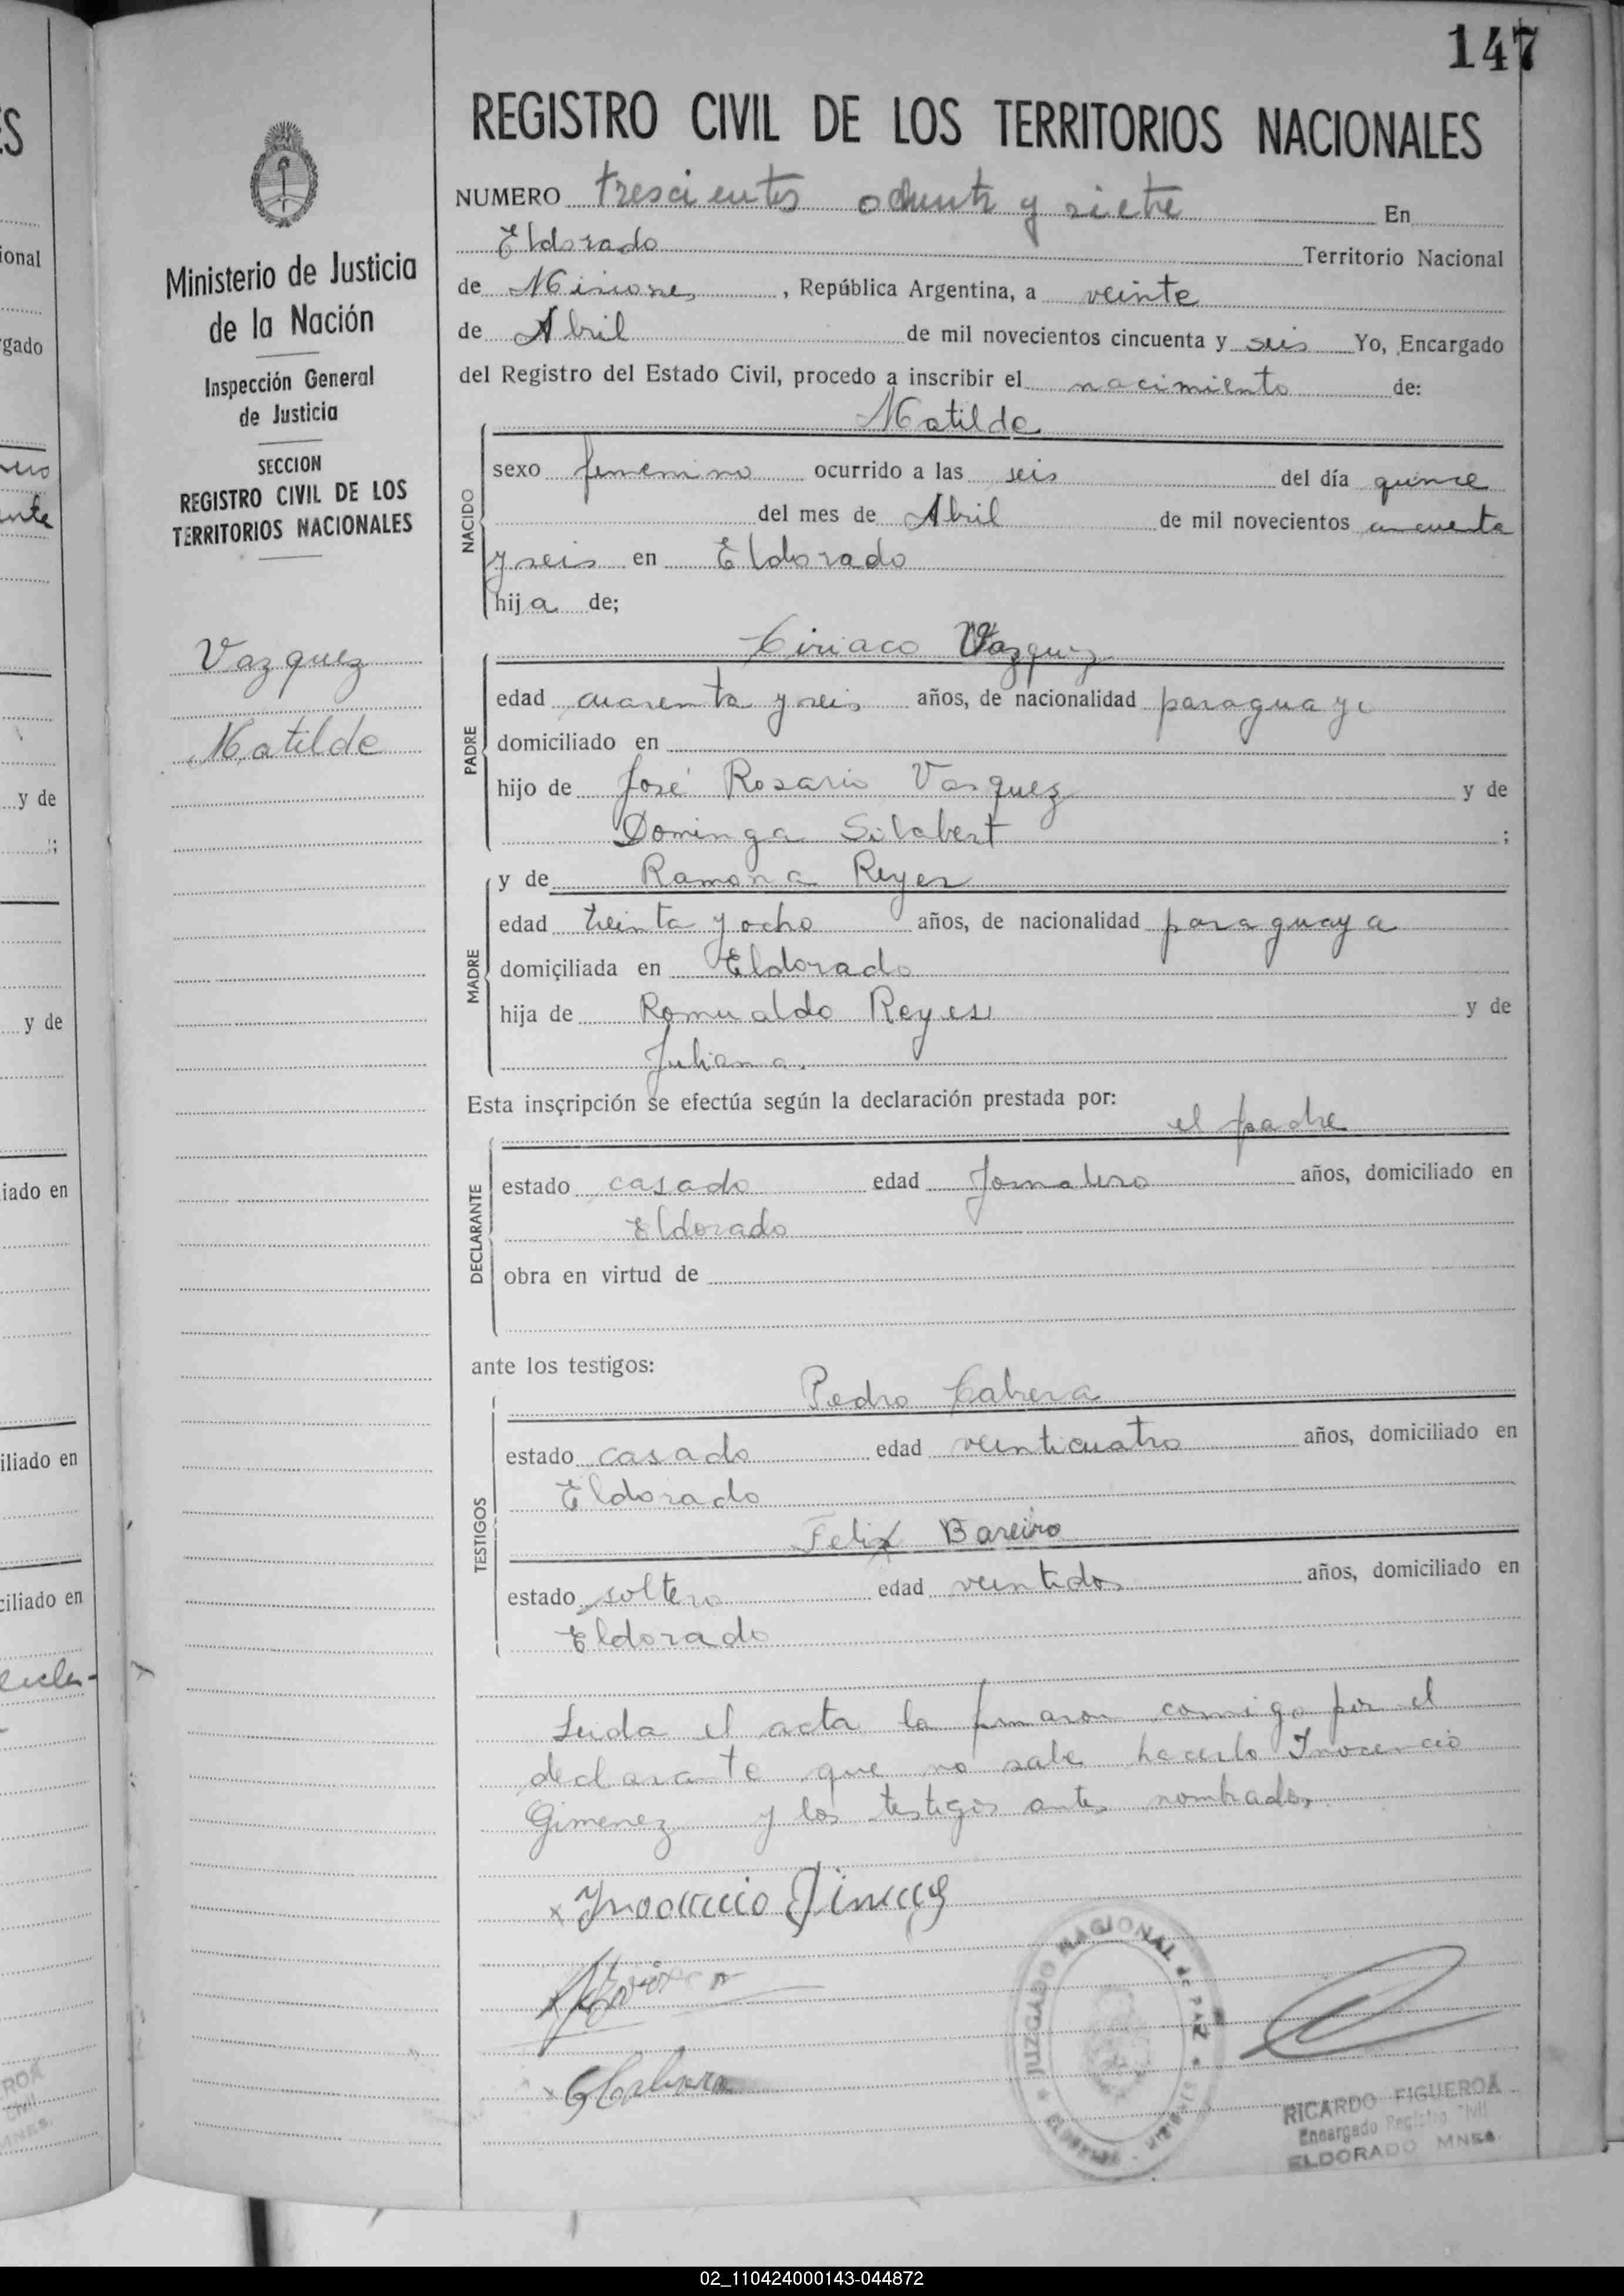 147
REGISTRO CIVIL DE LOS TERRITORIOS NACIONALES
NUMERO trescientos ochenta y siete En
Eldorado Territorio Nacional
de Misiones, República Argentina, a veinte
de Abril de mil novecientos cincuenta y seis Yo, Encargado
del Registro del Estado Civil, procedo a inscribir el nacimiento de:
Matilde
NACIDO
sexo femenino ocurrido a las seis del día quince
del mes de Abril de mil novecientos cincuenta
y seis en Eldorado
hija de;
Ciriaco Vazquez
PADRE
edad cuarenta y seis años, de nacionalidad paraguayo
domiciliado en
hijo de José Rosario Vasquez y de
Dominga Silabert ;
MADRE
y de Ramona Reyes
edad treinta y ocho años, de nacionalidad paraguaya
domiciliada en Eldorado
hija de Romualdo Reyes y de
Juliana.
Esta inscripción se efectúa según la declaración prestada por:
el padre
DECLARANTE
estado casado edad Jornalero años, domiciliado en
Eldorado
obra en virtud de
ante los testigos:
Pedro Cabrera
TESTIGOS
estado casado edad veinticuatro años, domiciliado en
Eldorado
Felix Bareiro
estado soltero edad veintidos años, domiciliado en
Eldorado
Leida el acta la firmaron conmigo por el
declarante que no sabe hacerlo Inocencio
Gimenez y los testigos antes nombrados
Ministerio de Justicia
de la Nación
Inspección General
de Justicia
SECCION
REGISTRO CIVIL DE LOS
TERRITORIOS NACIONALES
Vazquez
Matilde
JUZGADO NACIONAL de PAZ
RICARDO FIGUEROA
Encargado Registro Civil
ELDORADO MNES.
ional
gado
y de
y de
iado en
iliado en
ciliado en
02_110424000143-044872